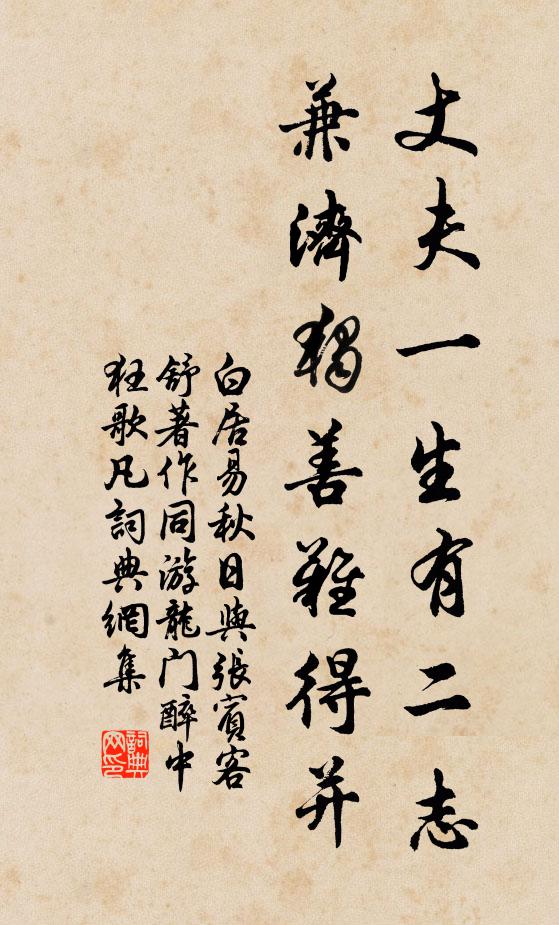 丈夫一生有二志
兼濟獨善難得并
白居易秋日與張賓客
舒著作同游龍门醉中
狂歌凡詞典網集
詞典
网印